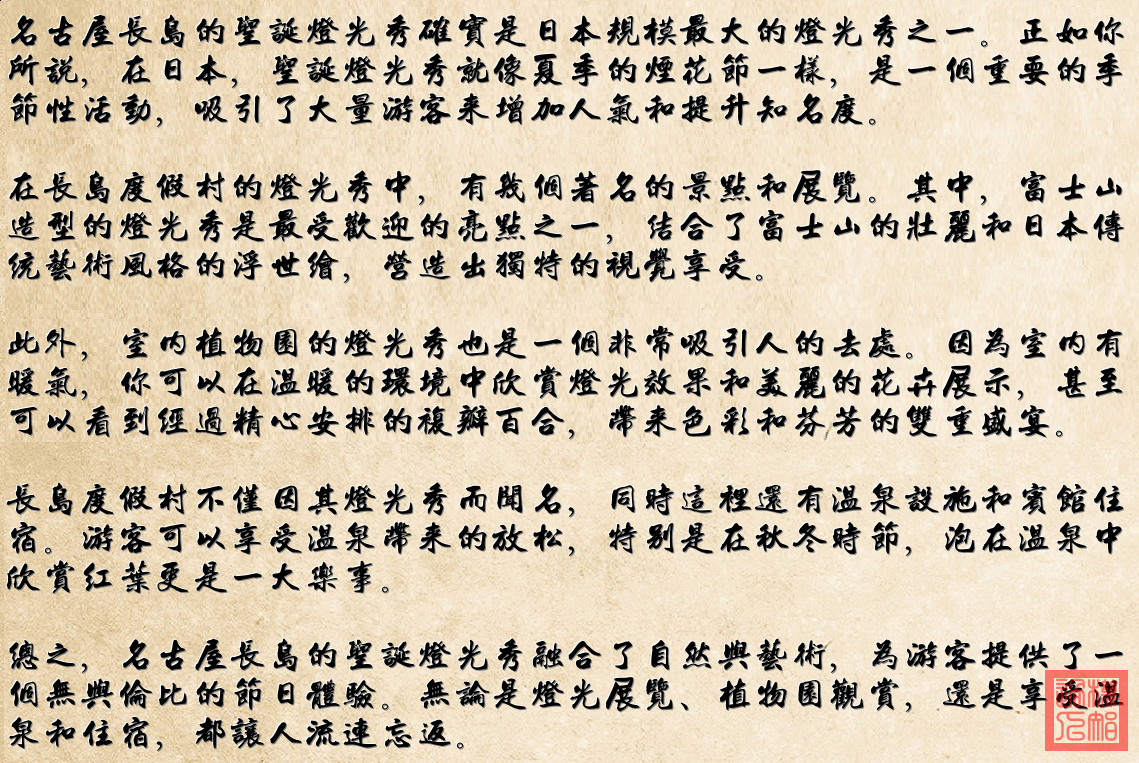 名古屋長島的聖誕燈光秀確實是日本規模最大的燈光秀之一。正如你
所説，在日本，聖誕燈光秀就像夏季的煙花節一樣，是一個重要的季
節性活動，吸引了大量游客来增加人氣和提升知名度。
在長島度假村的燈光秀中，有幾個著名的景點和展覽。其中，富士山
造型的燈光秀是最受歡迎的亮點之一，結合了富士山的壯麗和日本傳
統藝術風格的浮世繪，營造出獨特的視覺享受。
此外，室内植物園的燈光秀也是一個非常吸引人的去處。因為室内有
暖氣，你可以在溫暖的環境中欣賞燈光效果和美麗的花卉展示，甚至
可以看到經過精心安排的複瓣百合，帶来色彩和芬芳的雙重盛宴。
長島度假村不僅因其燈光秀而聞名，同時這裡還有溫泉設施和賓館住
宿。游客可以享受溫泉帶来的放松，特别是在秋冬時節，泡在溫泉中
欣賞红葉更是一大樂事。
總之，名古屋長島的聖誕燈光秀融合了自然與藝術，為游客提供了一
個無與倫比的節日體驗。無論是燈光展覽、植物園觀賞，還是享受溫
泉和住宿，都讓人流連忘返。